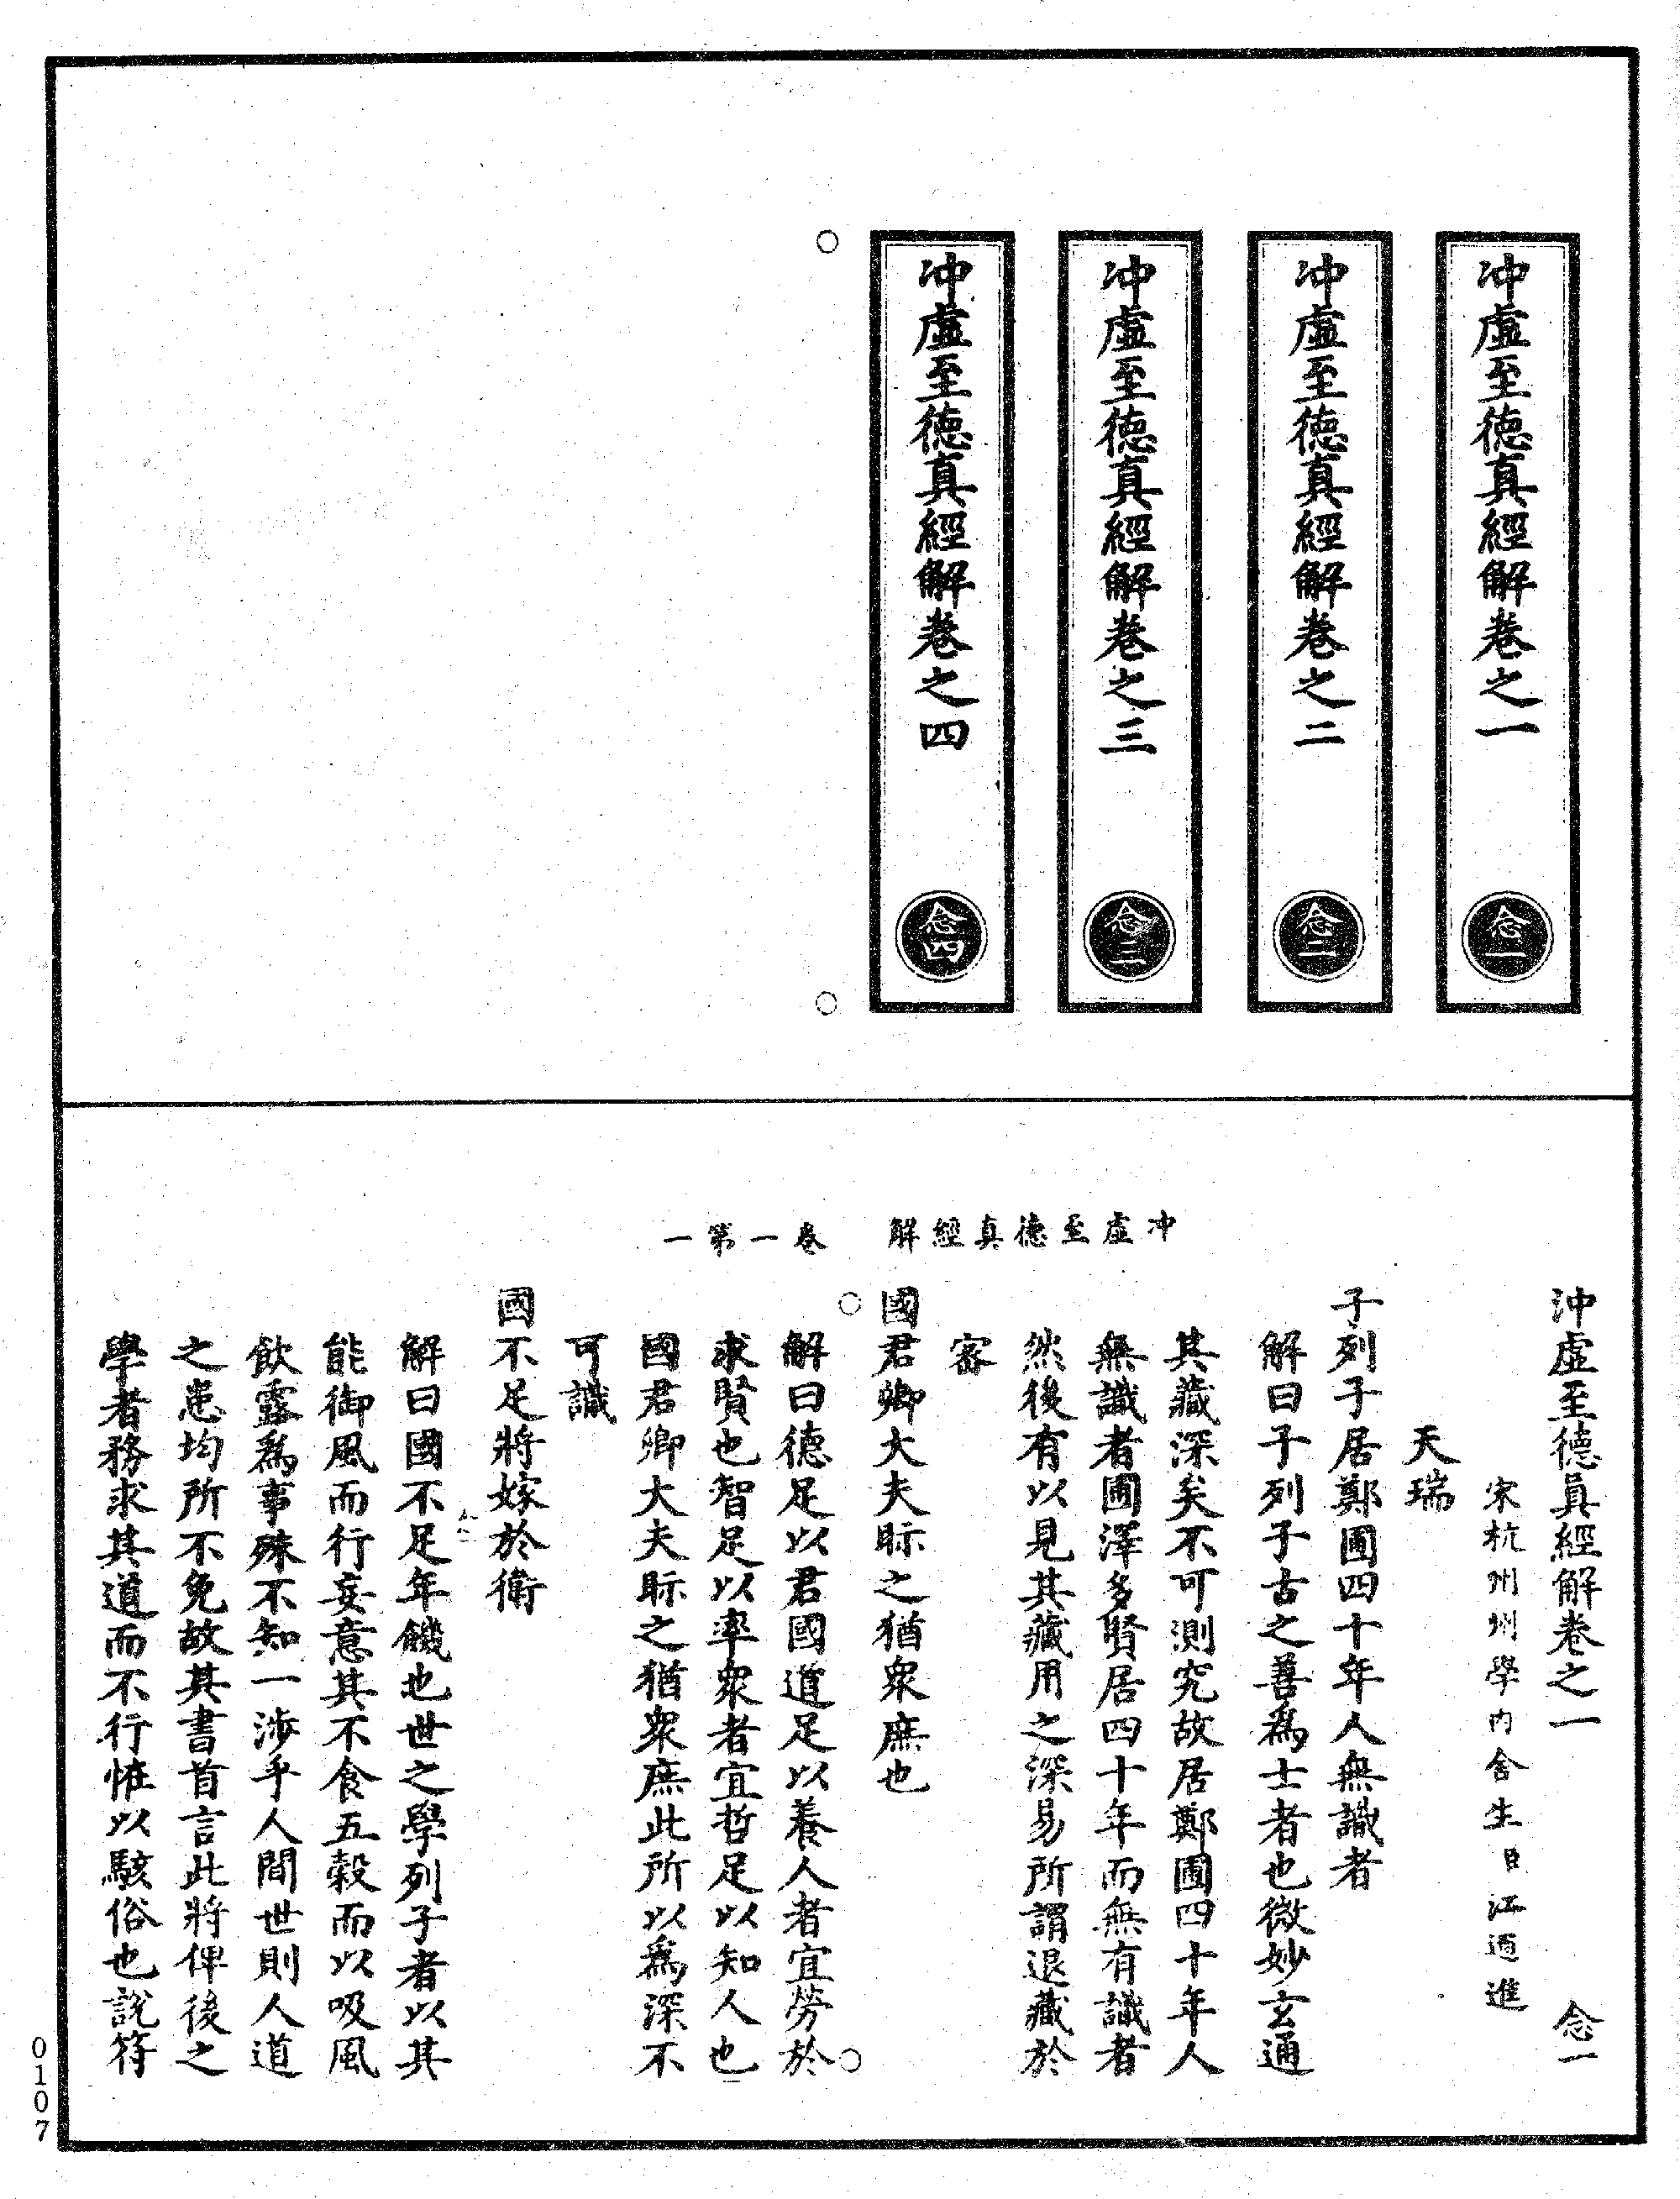 冲虛至德真經解卷之一
念一
冲虛至德真經解卷之二
念二
冲虛至德真經解卷之三
念三
冲虛至德真經解卷之四
念四
冲虛至德真經解　卷一第一
沖虛至德眞經解卷之一　念一
宋杭州州學内舍生臣江遹進
天瑞
子列子居鄭圃四十年人無識者
解曰子列子古之善爲士者也微妙玄通
其藏深矣不可測究故居鄭圃四十年人
無識者圃澤多賢居四十年而無有識者
然後有以見其藏用之深易所謂退藏於
密
國君卿大夫眎之猶衆庶也
解曰德足以君國道足以養人者宜勞於
求賢也智足以率衆者宜哲足以知人也
國君卿大夫眎之猶衆庶此所以爲深不
可識
國不足將嫁於衛
解曰國不足年饑也世之學列子者以其
能御風而行妄意其不食五穀而以吸風
飲露爲事殊不知一涉乎人間世則人道
之患均所不免故其書首言此將俾後之
學者務求其道而不行怪以駭俗也說符
0107